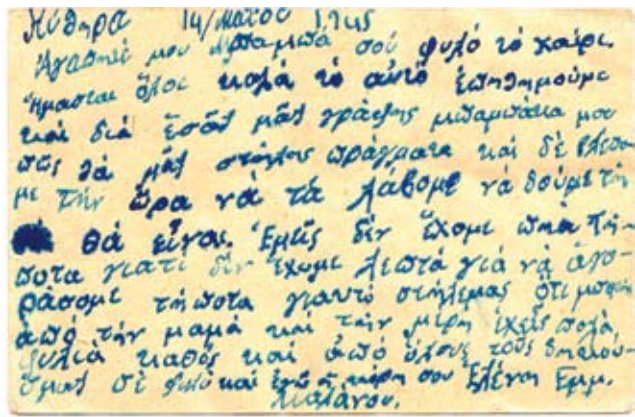 Κύθηρα 14/Μαΐου 1945
Ἀγαπητέ μου Μπαμπά σοῦ φυλό τό χαίρι.
Ἤμασται ὅλοι καλά τό αὐτό ἐπηθημοῦμε
καί διά ἐσᾶς μᾶς γράφης μπαμπάκα μου
πῶς θά μᾶς στήλης πράγματα καί δέ βλέπο
με τήν ὥρα νά τά λάβομε νά δοῦμε τη
θά εἶναι. Ἐμεῖς δέν ἔχομε πηα τή
ποτα γιατί δέν ἔχομε λεπτά γιά νά ἀγο
ράσομε τήποτα γιαυτό στήλεμας ὅτι μπορῆς
ἀπό τήν μαμά καί τήν μίρη ἔχεις πολά
φυλιά καθός καί ἀπό ὅλους τούς δηκούς
μας σέ φυλό καί ἐγώ ἡ κόρη σου Ἑλένη Ἐμμ.